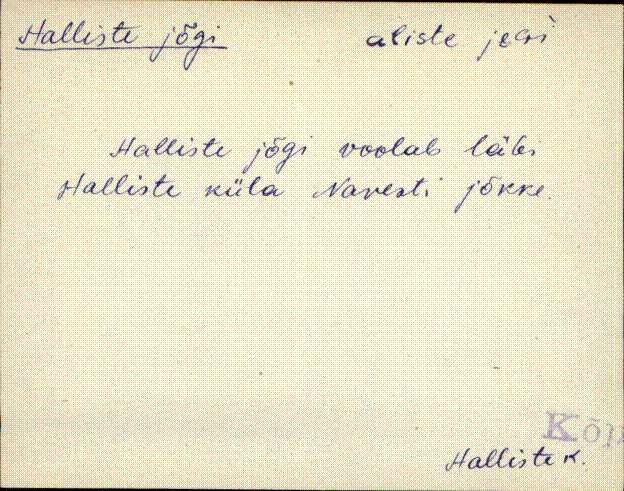 Halliste jõgi
Halliste jõgi voolab läbi
Halliste küla Navesti jõkke.
Kõp
Halliste k.